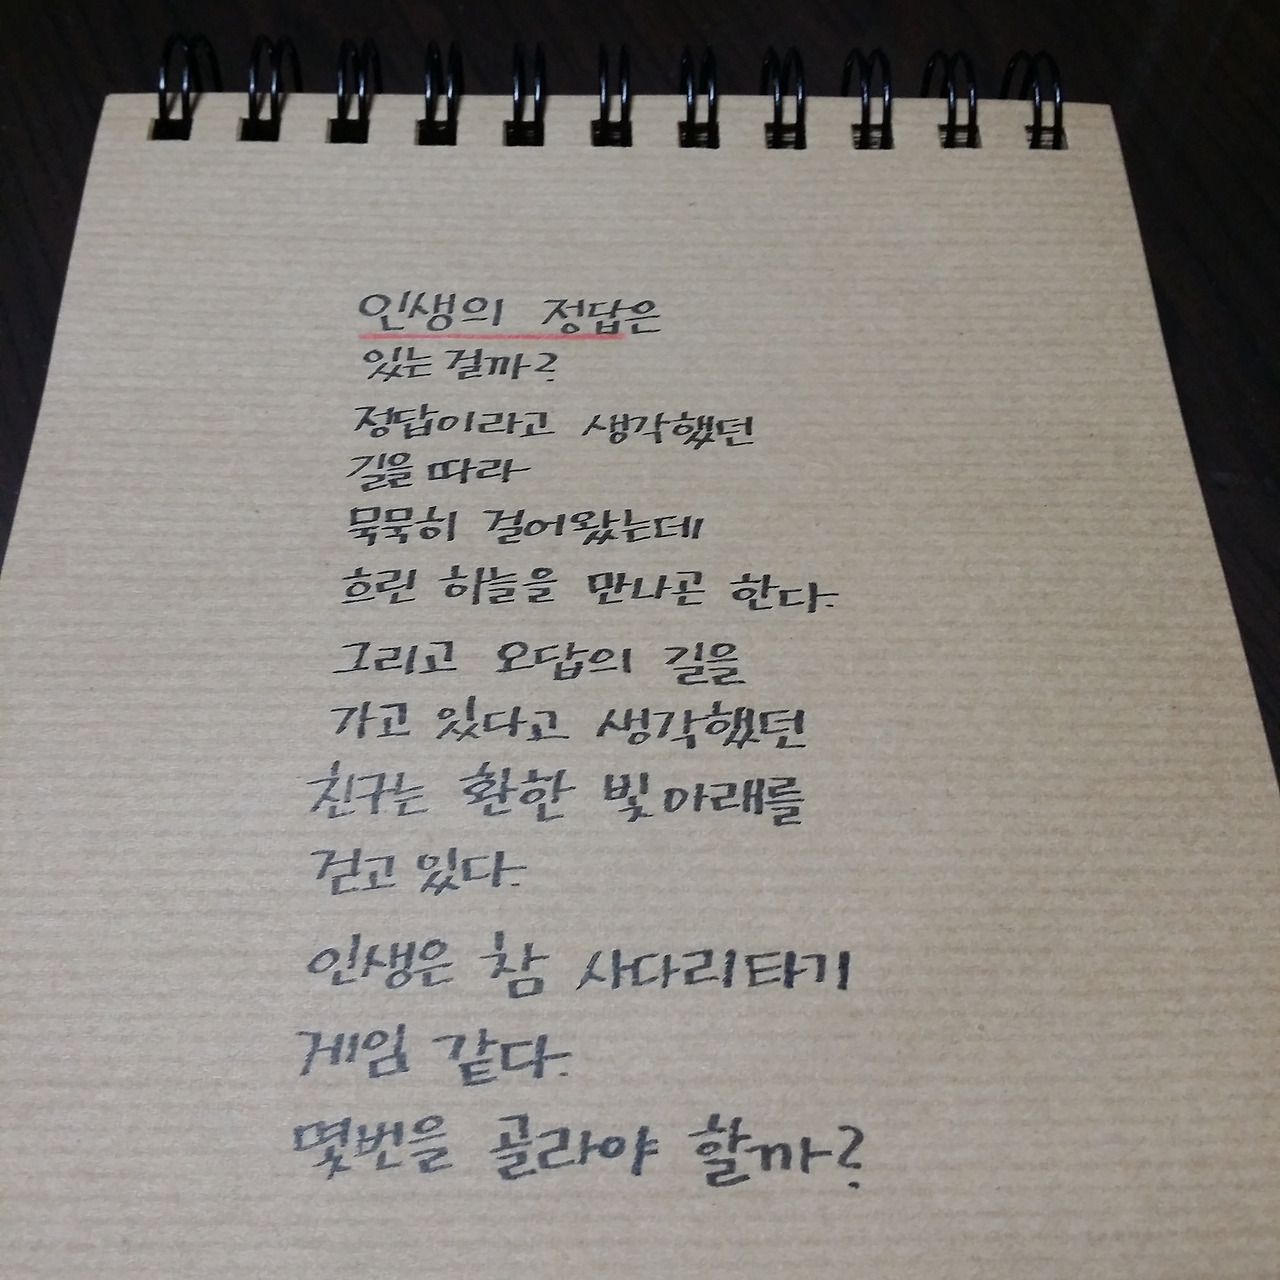 인생의 정답은
있는 걸까?
정답이라고 생각했던
길을 따라
묵묵히 걸어왔는데
흐린 하늘을 만나곤 한다.
그리고 오답의 길을
가고 있다고 생각했던
친구는 환한 빛 아래를
걷고 있다.
인생은 참 사다리타기
게임 같다.
몇번을 골라야 할까?